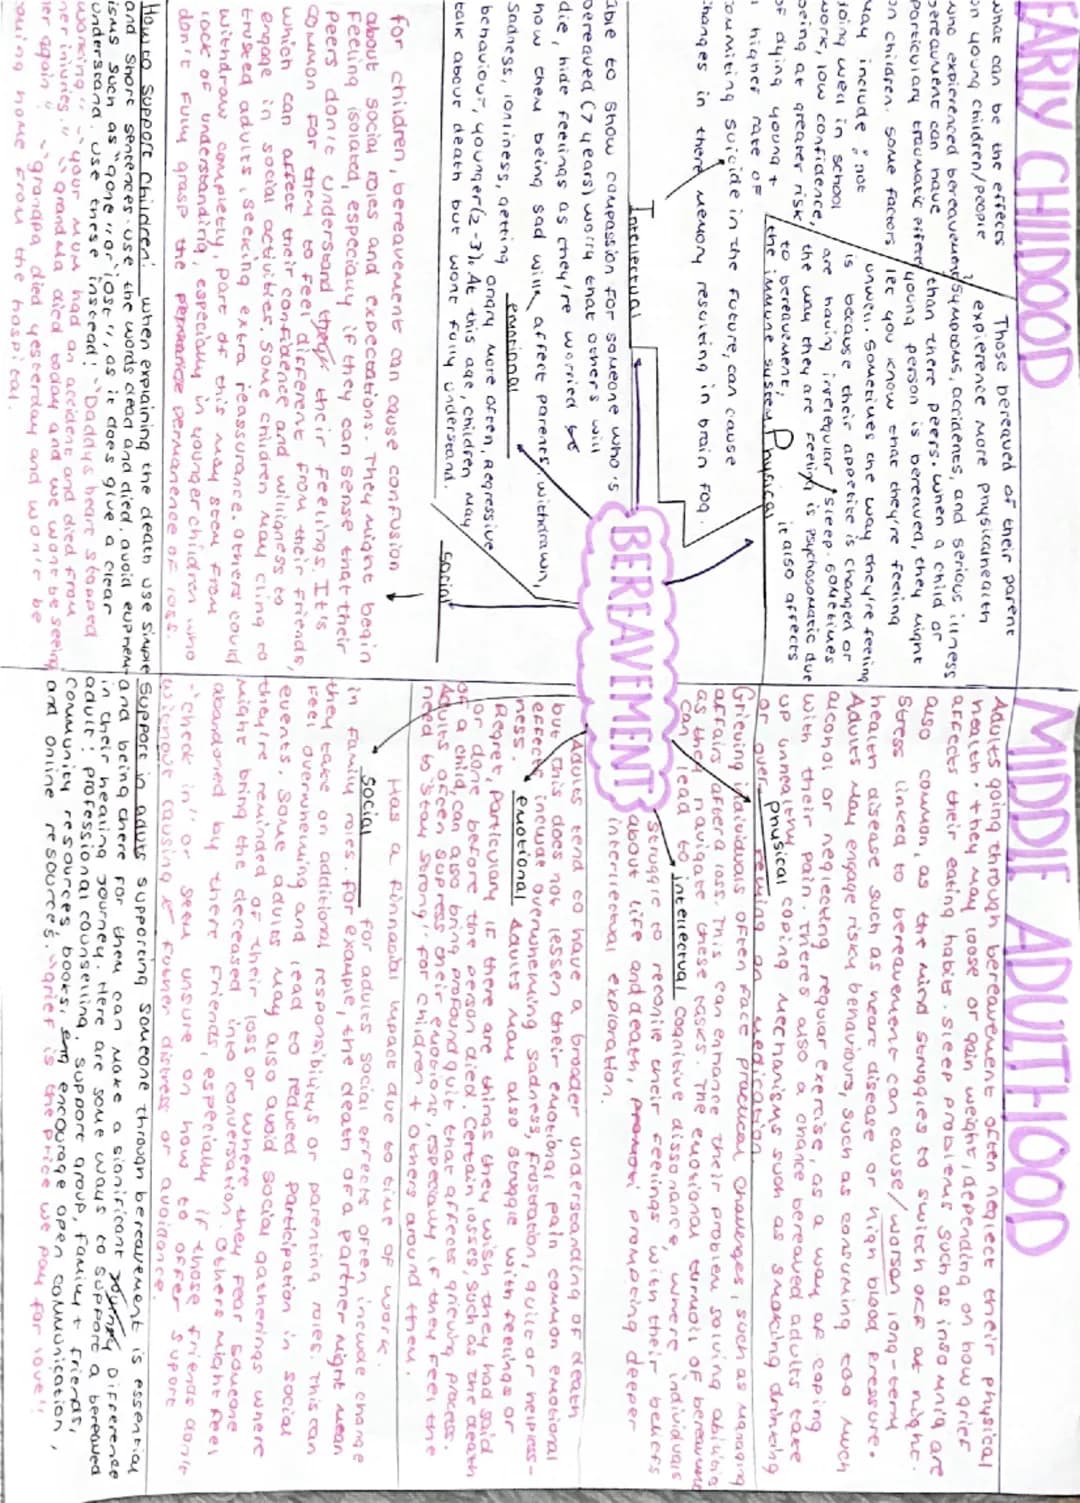 EARLY CHILDOOD
what can be the effects
on young children/people
who expierenced bereavement
bereavement can have
particulary traumatic effect
on children. some factors
may include; not
doing well in school
work, low confidence,
being at greater risk
of dying young +
a higher rate of
commiting suicide in the future, can cause
changes in there memory resulting in brain fog.
Those bereaved of their parent
expierence more physical health
symptoms, accidents, and serious illness
than there peers. when a child or
young person is bereaved, they might
let you know that they're feeling
unwell. sometimes the way they're feeling
is because their appetite is changed or
are having irregular sleep. sometimes
the way they are feeling is psychosomatic due
to bereavement; it also affects
the immune system. Physical
Intellectual
able to show compassion for someone who's
bereaved (7 years) worry that others will
die, hide feelings as they're worried
how them being sad will affect parents. withdrawn,
emotional
sadness, lonliness, getting angry more often, Regressive
behaviour, younger (2-3). At this age, children may
talk about death but wont fully understand.
social
for children, bereavement can cause confusion
about social roles and expectations. They might begin
feeling isolated, especially if they can sense that their
peers dont understand their feelings. It's
common for them to feel different from their friends,
which can affect their confidence and willigness to
engage in social activities. Some children may cling to
trused adults, seeking extra reassurance. others could
withdraw completely, part of this may stem from
lack of understanding, especially in younger children who
don't fully grasp the permanence of loss.
How to support Children: when explaining the death use simple
and short sentences. use the words dead and died. avoid euphem-
isms such as "gone" or "lost", as it does give a clear
understand. use these instead: "Daddys heart stopped
working" - "your mum had an accident and died from
her injuries." "grandma died today and we wont be seeing
her again" - "grandpa died yesterday and won't be
coming home from the hospital.
BEREAVEMENT
MIDDLE ADULTHOOD
Adults going through bereavement often neglect their physical
health. + they may loose or gain weight, depending on how grief
affects their eating habits. sleep problems such as insomnia are
also common, as the mind struggles to switch off at night.
stress linked to bereavement can cause/worsen long-term
health disease such as heart disease or high blood pressure.
Adults may engage risky behaviours, such as consuming too much
alcohol or neglecting regular exercise, as a way of coping
with their pain. Theres also a chance bereaved adults take
up unhealthy coping mechanisms such as smoking drinking
or over relying on medication. physical
Grieving individuals often face practical challenges, such as managing
affairs after a loss. This can enhance their problem solving abilities
as they navigate these tasks. The emotional turmoil of bereavement
can lead to intellectual cognitive dissonance, where individuals
struggle to reconile their feelings, with their beliefs
about life and death, prompting deeper
intellectual exploration.
Adults tend to have a broader understanding of death
but this does not lessen their emotional pain common emotional
effects include overwhelming sadness, frustration, guilt or helpless-
ness. emotional Adults may also struggle with feelings of
Regret, particulary if there are things they wish they had said
or done before the person died. Certain loses, such as the death
of a child, can also bring profound guilt that affects grieving process.
Adults often supress their emotions, especially if they feel the
need to "stay strong" for children + others around them.
Has a financial impact due to time of work.
social for adults social effects often include change
in family roles. for example, the death of a partner might mean
they take on additional responsibilitys or parenting roles. This can
feel overwhelming and lead to reduced participation in social
events. some adults may also avoid social gatherings where
they're reminded of their loss or where they fear someone
might bring the decreased into conversation. Others might feel
abandoned by there friends, especially if those friends don't
"check in" or seem unsure on how to offer support
without causing further distress or avoidance.
Support in adults supporting someone through bereavement is essential
and being there for them can make a significant difference
in their healing journey. Here are some ways to support a bereaved
adult: professional counselling, support group, family + friends,
community resources books, encourage open communication,
and online resources. "grief is the price we pay for love"!